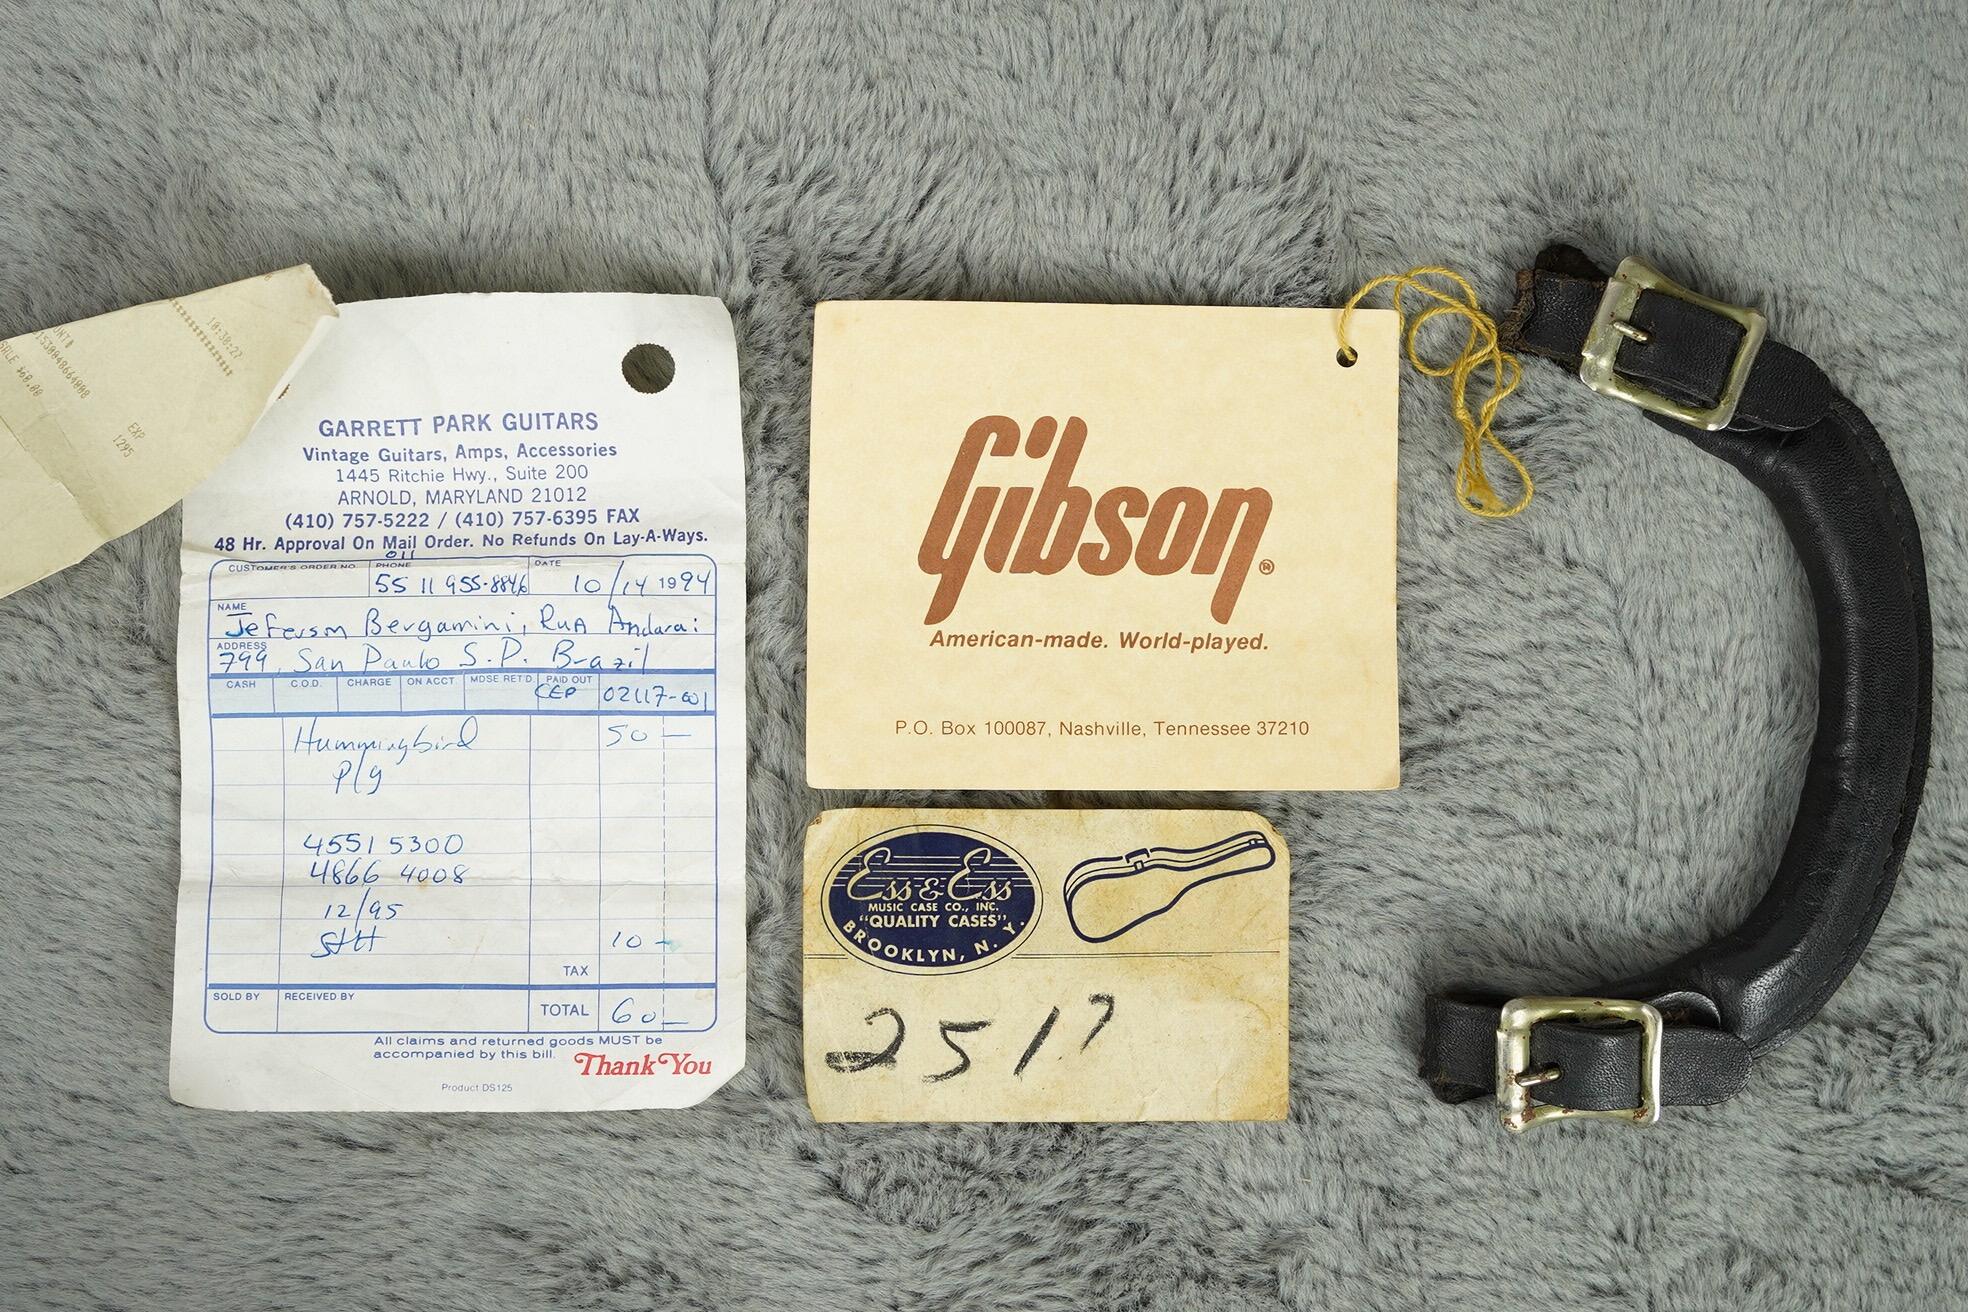 10:38:27
EXP
1295
GARRETT PARK GUITARS
Vintage Guitars, Amps, Accessories
1445 Ritchie Hwy., Suite 200
ARNOLD, MARYLAND 21012
(410) 757-5222 / (410) 757-6395 FAX
48 Hr. Approval On Mail Order. No Refunds On Lay-A-Ways.
011
CUSTOMER'S ORDER NO. PHONE DATE
55 11 955-8846 10/14 1994
NAME
Jeferson Bergamini, Rua Andarai
ADDRESS
799, San Paulo S.P. Brazil
CASH C.O.D. CHARGE ON ACCT. MDSE RET'D. PAID OUT
CEP 02117-001
Hummingbird 50 —
P/g
4551 5300
4866 4008
12/95
S+H 10 —
TAX
SOLD BY RECEIVED BY
TOTAL 60 —
All claims and returned goods MUST be
accompanied by this bill.
Thank You
Product DS125
Gibson®
American-made. World-played.
P.O. Box 100087, Nashville, Tennessee 37210
Ess & Ess
MUSIC CASE CO., INC.
"QUALITY CASES"
BROOKLYN, N. Y.
2517